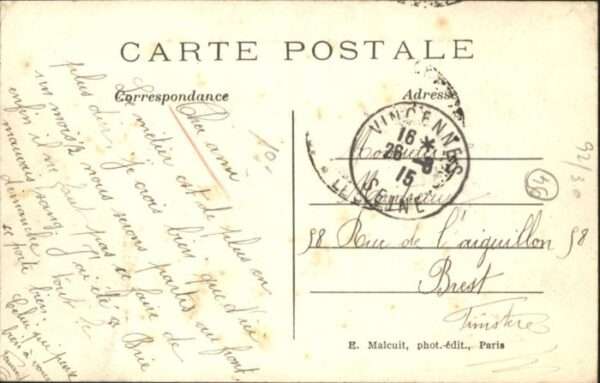 CARTE POSTALE
Correspondance
Adresse
Cher ami
Le métier est de plus en
plus dur, je crois bien que d'ici
un mois nous serons partis au front
enfin il ne faut pas se faire de
mauvais sang. J'ai été à Brie
dimanche tout le
se porte bien.
Celui qui
bien à vous
10.-
VINCENNES
16 *
26 - 8
15
SEINE
Monsieur
58 Rue de l'aiguillon 58
Brest
Finistère
92/30
E. Malcuit, phot.-édit., Paris